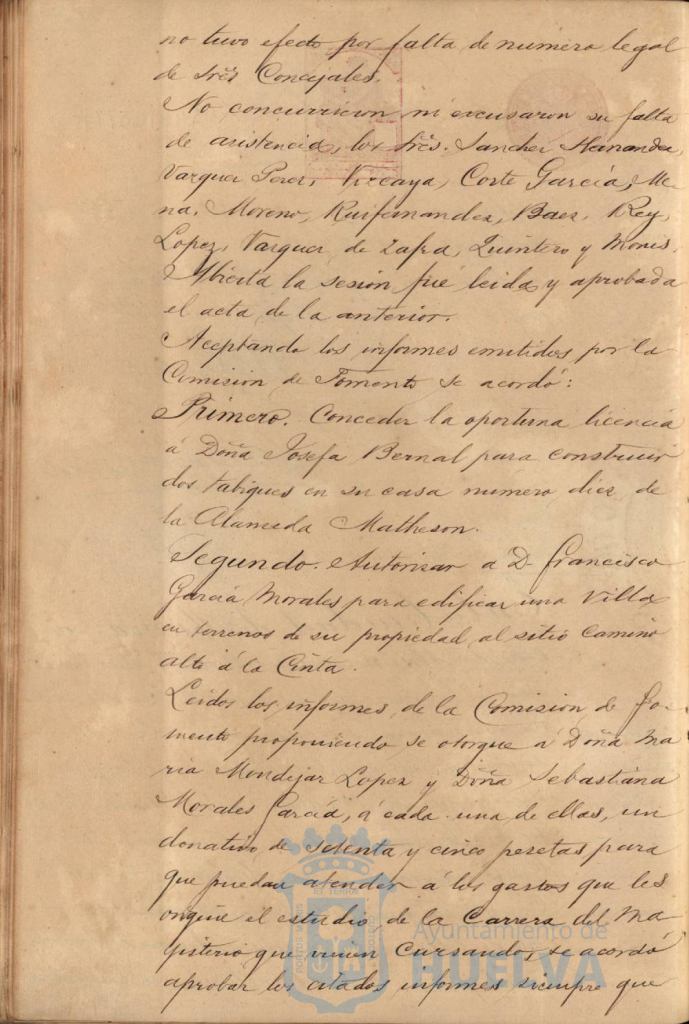 no tuvo efecto por falta de numero legal
de Sres Concejales.
No concurrieron ni excusaron su falta
de asistencia, los Sres. Sanchez Hernandez,
Vazquez Perez, Vizcaya, Corte García, Me-
na, Moreno, Ruifernandez, Baez, Rey,
Lopez, Vazquez de Zafra, Quintero y Monis.
Abierta la sesion fué leida y aprobada
el acta de la anterior.
Aceptando los informes emitidos por la
Comision de Fomento se acordó:
Primero. Conceder la oportuna licencia
á Doña Josefa Bernal para construir
dos tabiques en su casa numero diez de
la Alameda Matheson.
Segundo. Autorizar a D. Francisco
García Morales para edificar una Villa
en terrenos de su propiedad al sitio Camino
alto á la Cinta.
Leidos los informes de la Comision de Fo-
mento proponiendo se otorgue á Doña Ma
ria Mondejar Lopez y Doña Sebastiana
Morales García, á cada una de ellas, un
donativo de setenta y cinco pesetas para
que puedan atender á los gastos que les
origine el estudio de la Carrera del Ma
gisterio que vienen cursando, se acordó
aprobar los citados informes siempre que
Ayuntamiento de
HUELVA